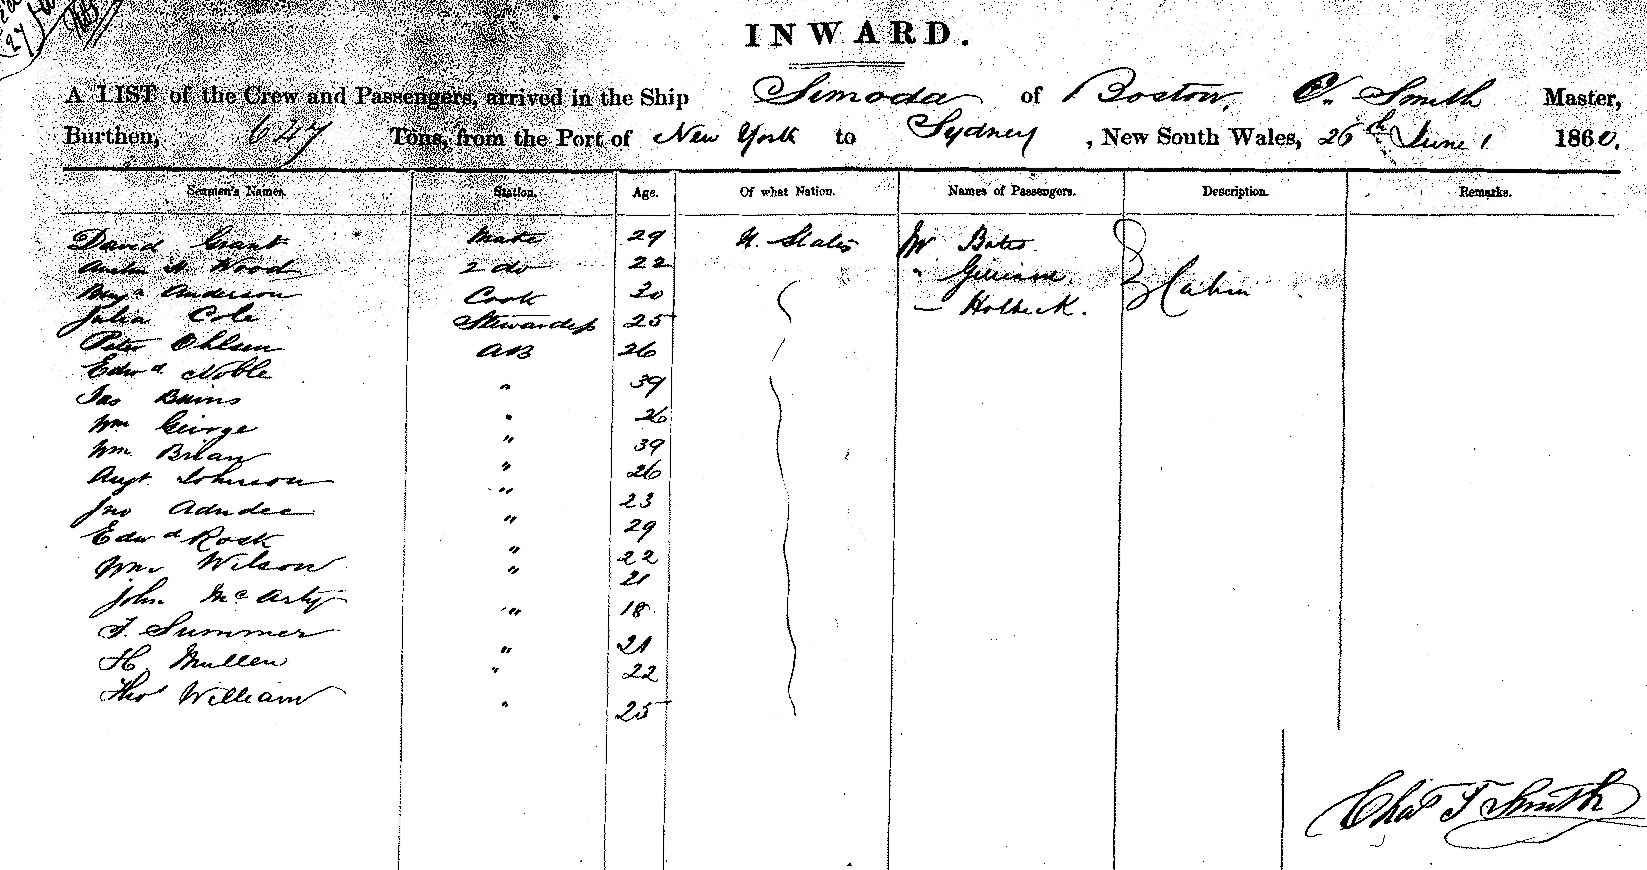 INWARD.
A LIST of the Crew and Passengers, arrived in the Ship Simoda of Boston, C. Smith Master,
Burthen, 647 Tons, from the Port of New York to Sydney, New South Wales, 26th June 1860.
Seamen's Names. Station. Age. Of what Nation. Names of Passengers. Description. Remarks.
David Grant Mate 29 U. States Mr Bates Cabin
Wood 2 do 22 "
Benjn Anderson Cook 30 — Holbeck.
Julia Cole Stewardess 25
Peter Ohlsen AB 26
Edwd Noble " 39
Jas Burns " 26
Wm George " 39
Wm Brian " 26
Augt Johnson " 23
Jno " 29
Edwd Rosk " 22
Wm Wilson " 21
John McArty " 18
F. Summer " 21
H. Mullen " 22
Thos William " 25
Chas F Smith